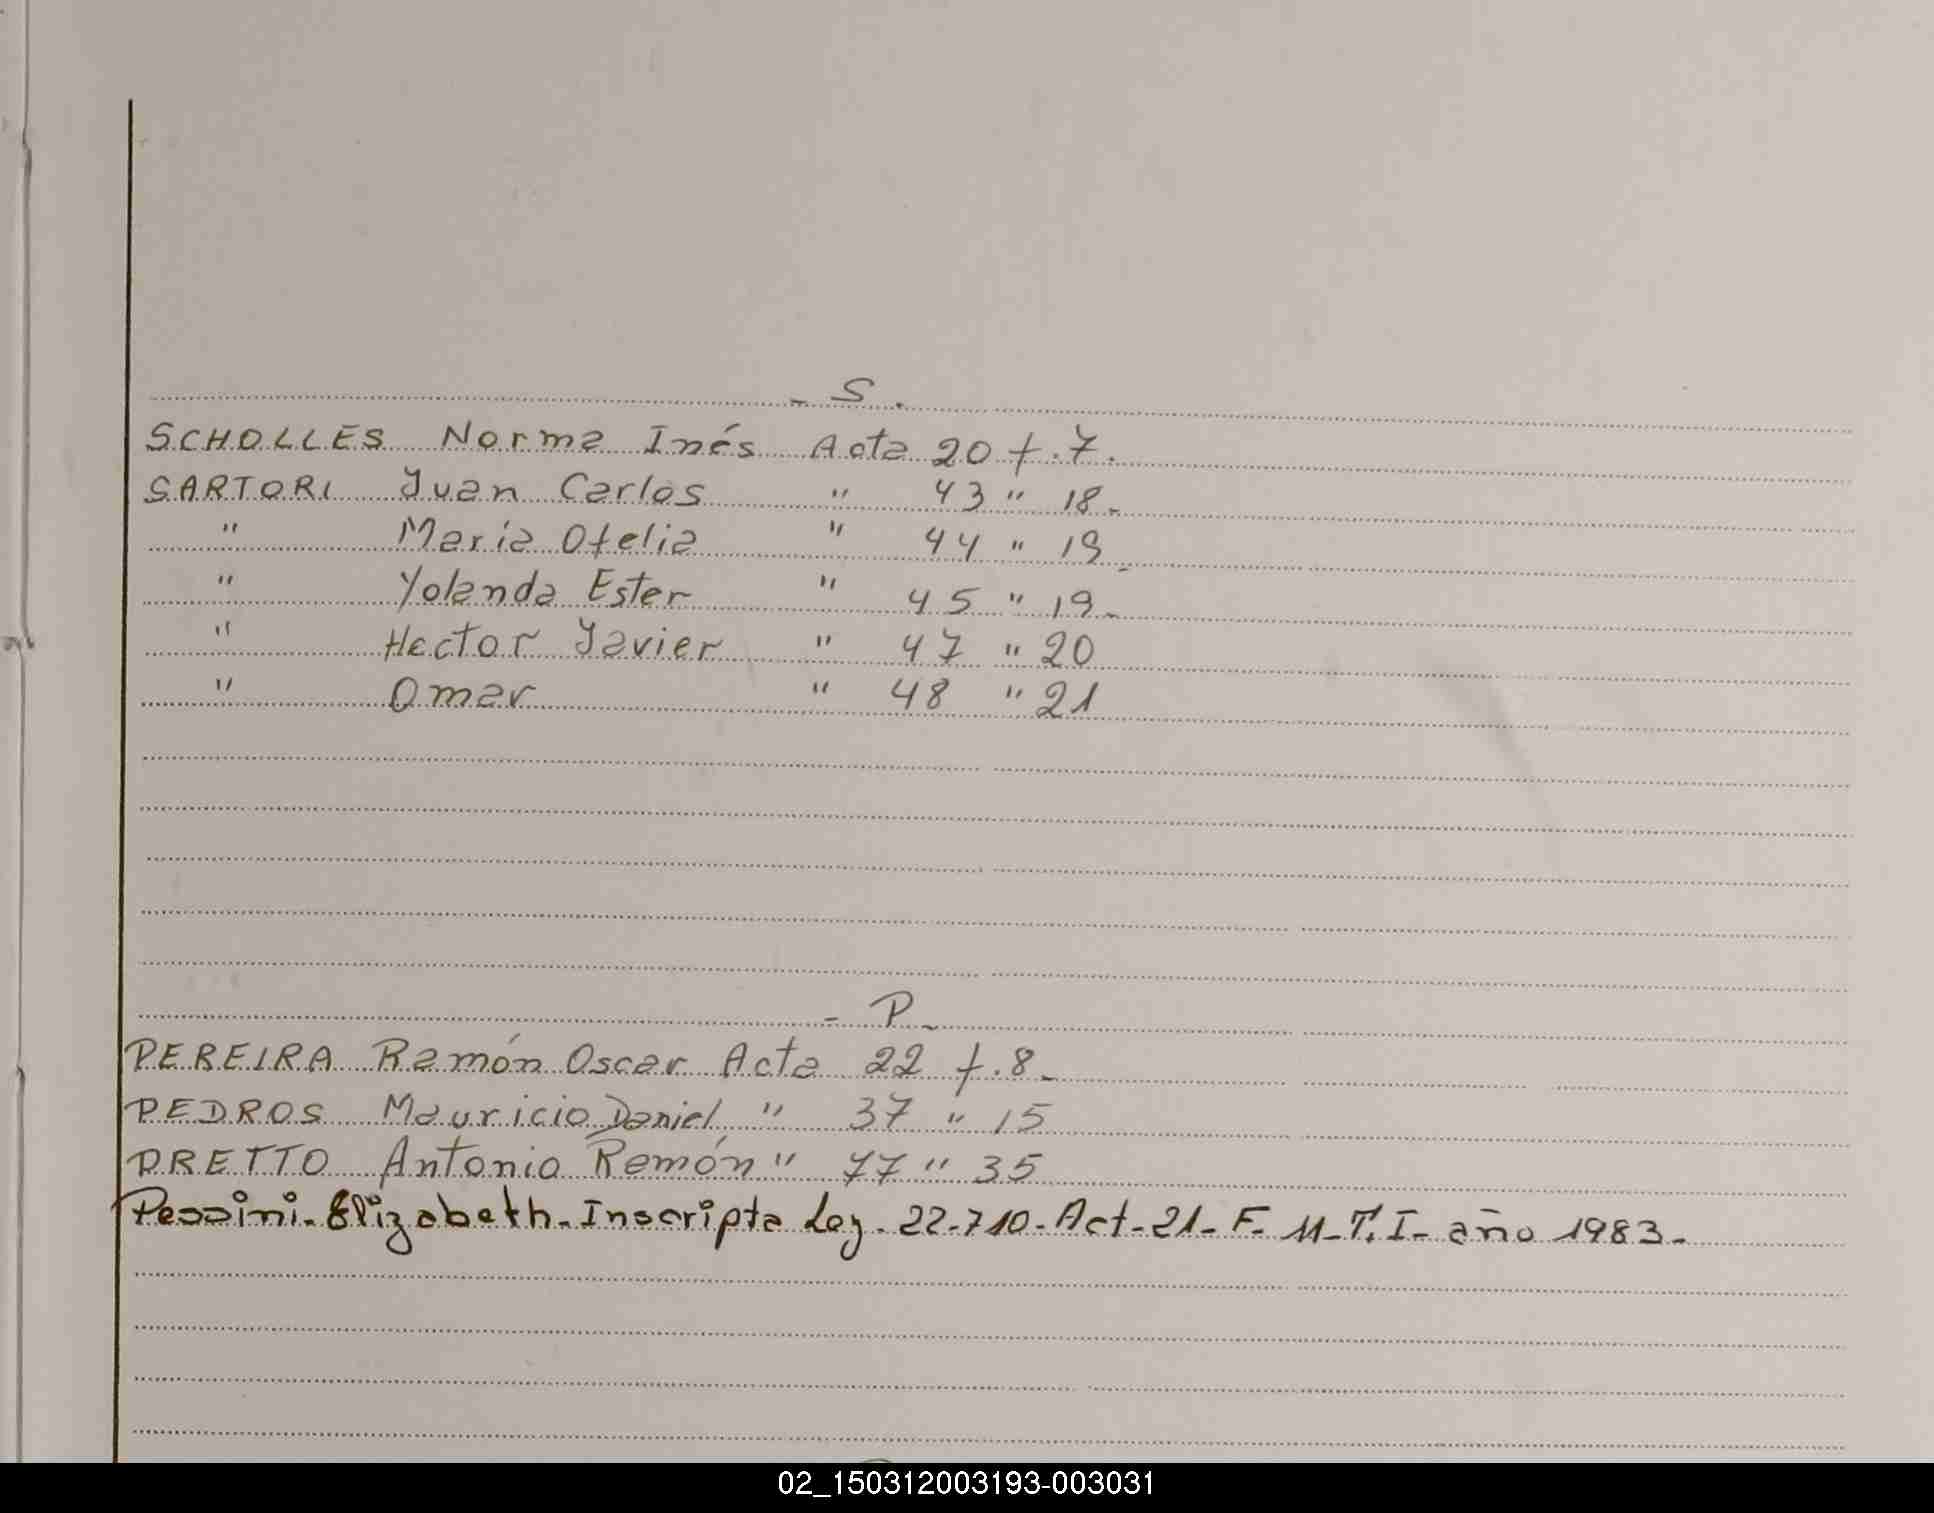 - S.
SCHOLLES Norma Inés Acta 20 f. 7.
SARTORI Juan Carlos " 43 " 18.-
" María Ofelia " 44 " 19.-
" Yolanda Ester " 45 " 19.-
" Hector Javier " 47 " 20
" Omar " 48 " 21
- P.-
PEREIRA Ramón Oscar Acta 22 f. 8.-
PEDROS Mauricio Daniel " 37 " 15
PRETTO Antonio Ramón " 77 " 35
Pessini - Elizabeth - Inscripta Ley - 22-710 - Act - 21 - F - 11 - T. I - año 1983.-
02_150312003193-003031